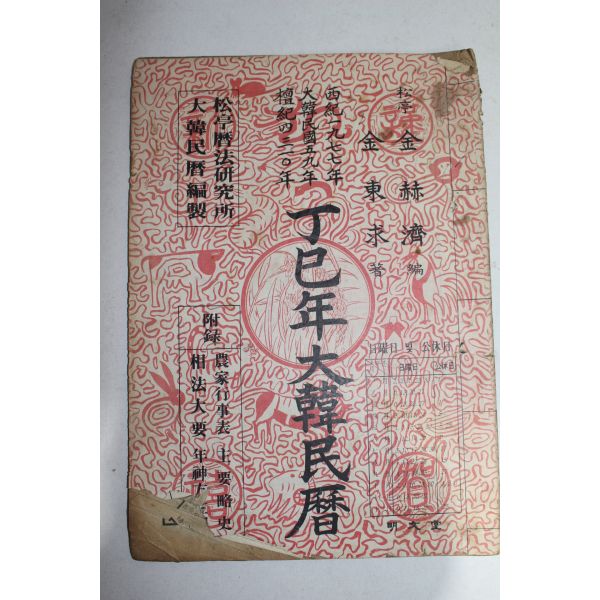 松亭 金赫濟 編
金東求 著
西紀一九七七年
大韓民國五九年
檀紀四三一〇年
丁巳年大韓民曆
松亭曆法硏究所
大韓民曆編製
附錄
農家行事表 主要略史
相法大要 年神
日曜日 및 公休日
明文堂